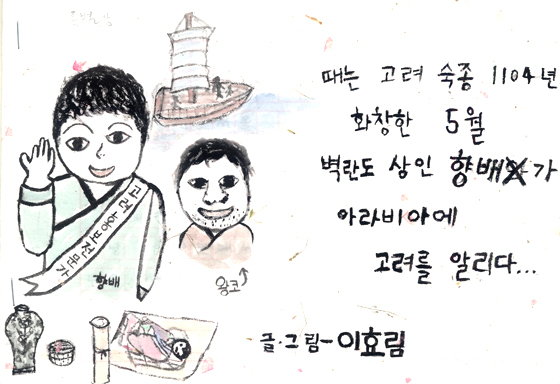 때는 고려 숙종 1104년
화창한 5월
벽란도 상인 향배가
아라비아에
고려를 알리다...
글·그림-이효림
고려홍보전문가
향배
왕코